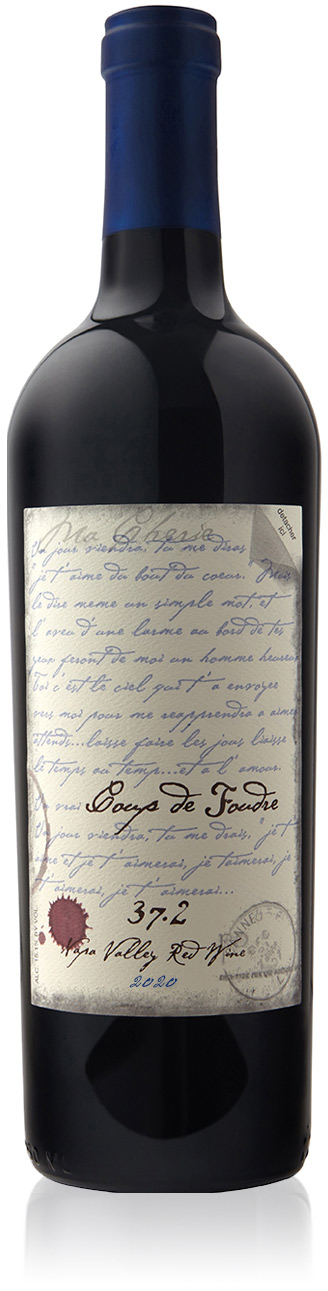 Ma Cherie
detacher
ici
Un jour viendra, tu me diras
"je t'aime du bout du coeur. Mais
le dire meme un simple mot, et
l'aveu d'une larme au bord de tes
yeux feront de moi un homme heureux
Toi c'est le ciel qui t'a envoyee
vers moi pour me reapprendra a aimer
attends...laisse faire les jours liaisse
le temps au temps...et a l'amour.
vrai Coup de Foudre
Un jour viendra, tu me drais, "je t'
aime et je t'aimerai, je t'aimerai, je
t'aimerai, je t'aimerai...
37.2
Napa Valley Red Wine
2020